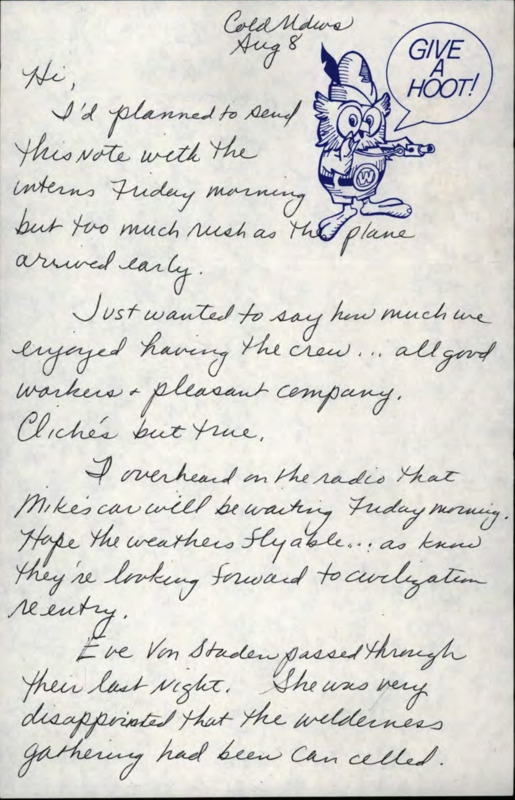 Cold Mdws
Aug 8
GIVE
A
HOOT!
Hi,
I'd planned to send
this note with the
interns Friday morning
but too much rush as the plane
arrived early.
Just wanted to say how much we
enjoyed having the crew... all good
workers + pleasant company.
Cliché's but true.
I overheard on the radio that
Mike's car will be waiting Friday morning.
Hope the weathers flyable... as know
they're looking forward to civilization
reentry.
Eve Von Staden passed through
their last night. She was very
disappointed that the wilderness
gathering had been cancelled.
W